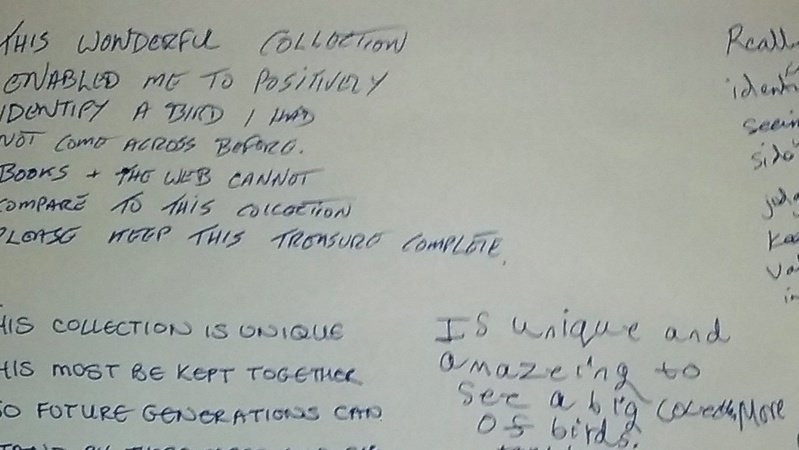 THIS WONDERFUL COLLECTION
ENABLED ME TO POSITIVELY
IDENTIFY A BIRD I HAD
NOT COME ACROSS BEFORE.
BOOKS + THE WEB CANNOT
COMPARE TO THIS COLLECTION
PLEASE KEEP THIS TREASURE COMPLETE.
HIS COLLECTION IS UNIQUE
HIS MOST BE KEPT TOGETHER
SO FUTURE GENERATIONS CAN
IS unique and
amazeing to
see a big
of birds. More
Reall
identi
seein